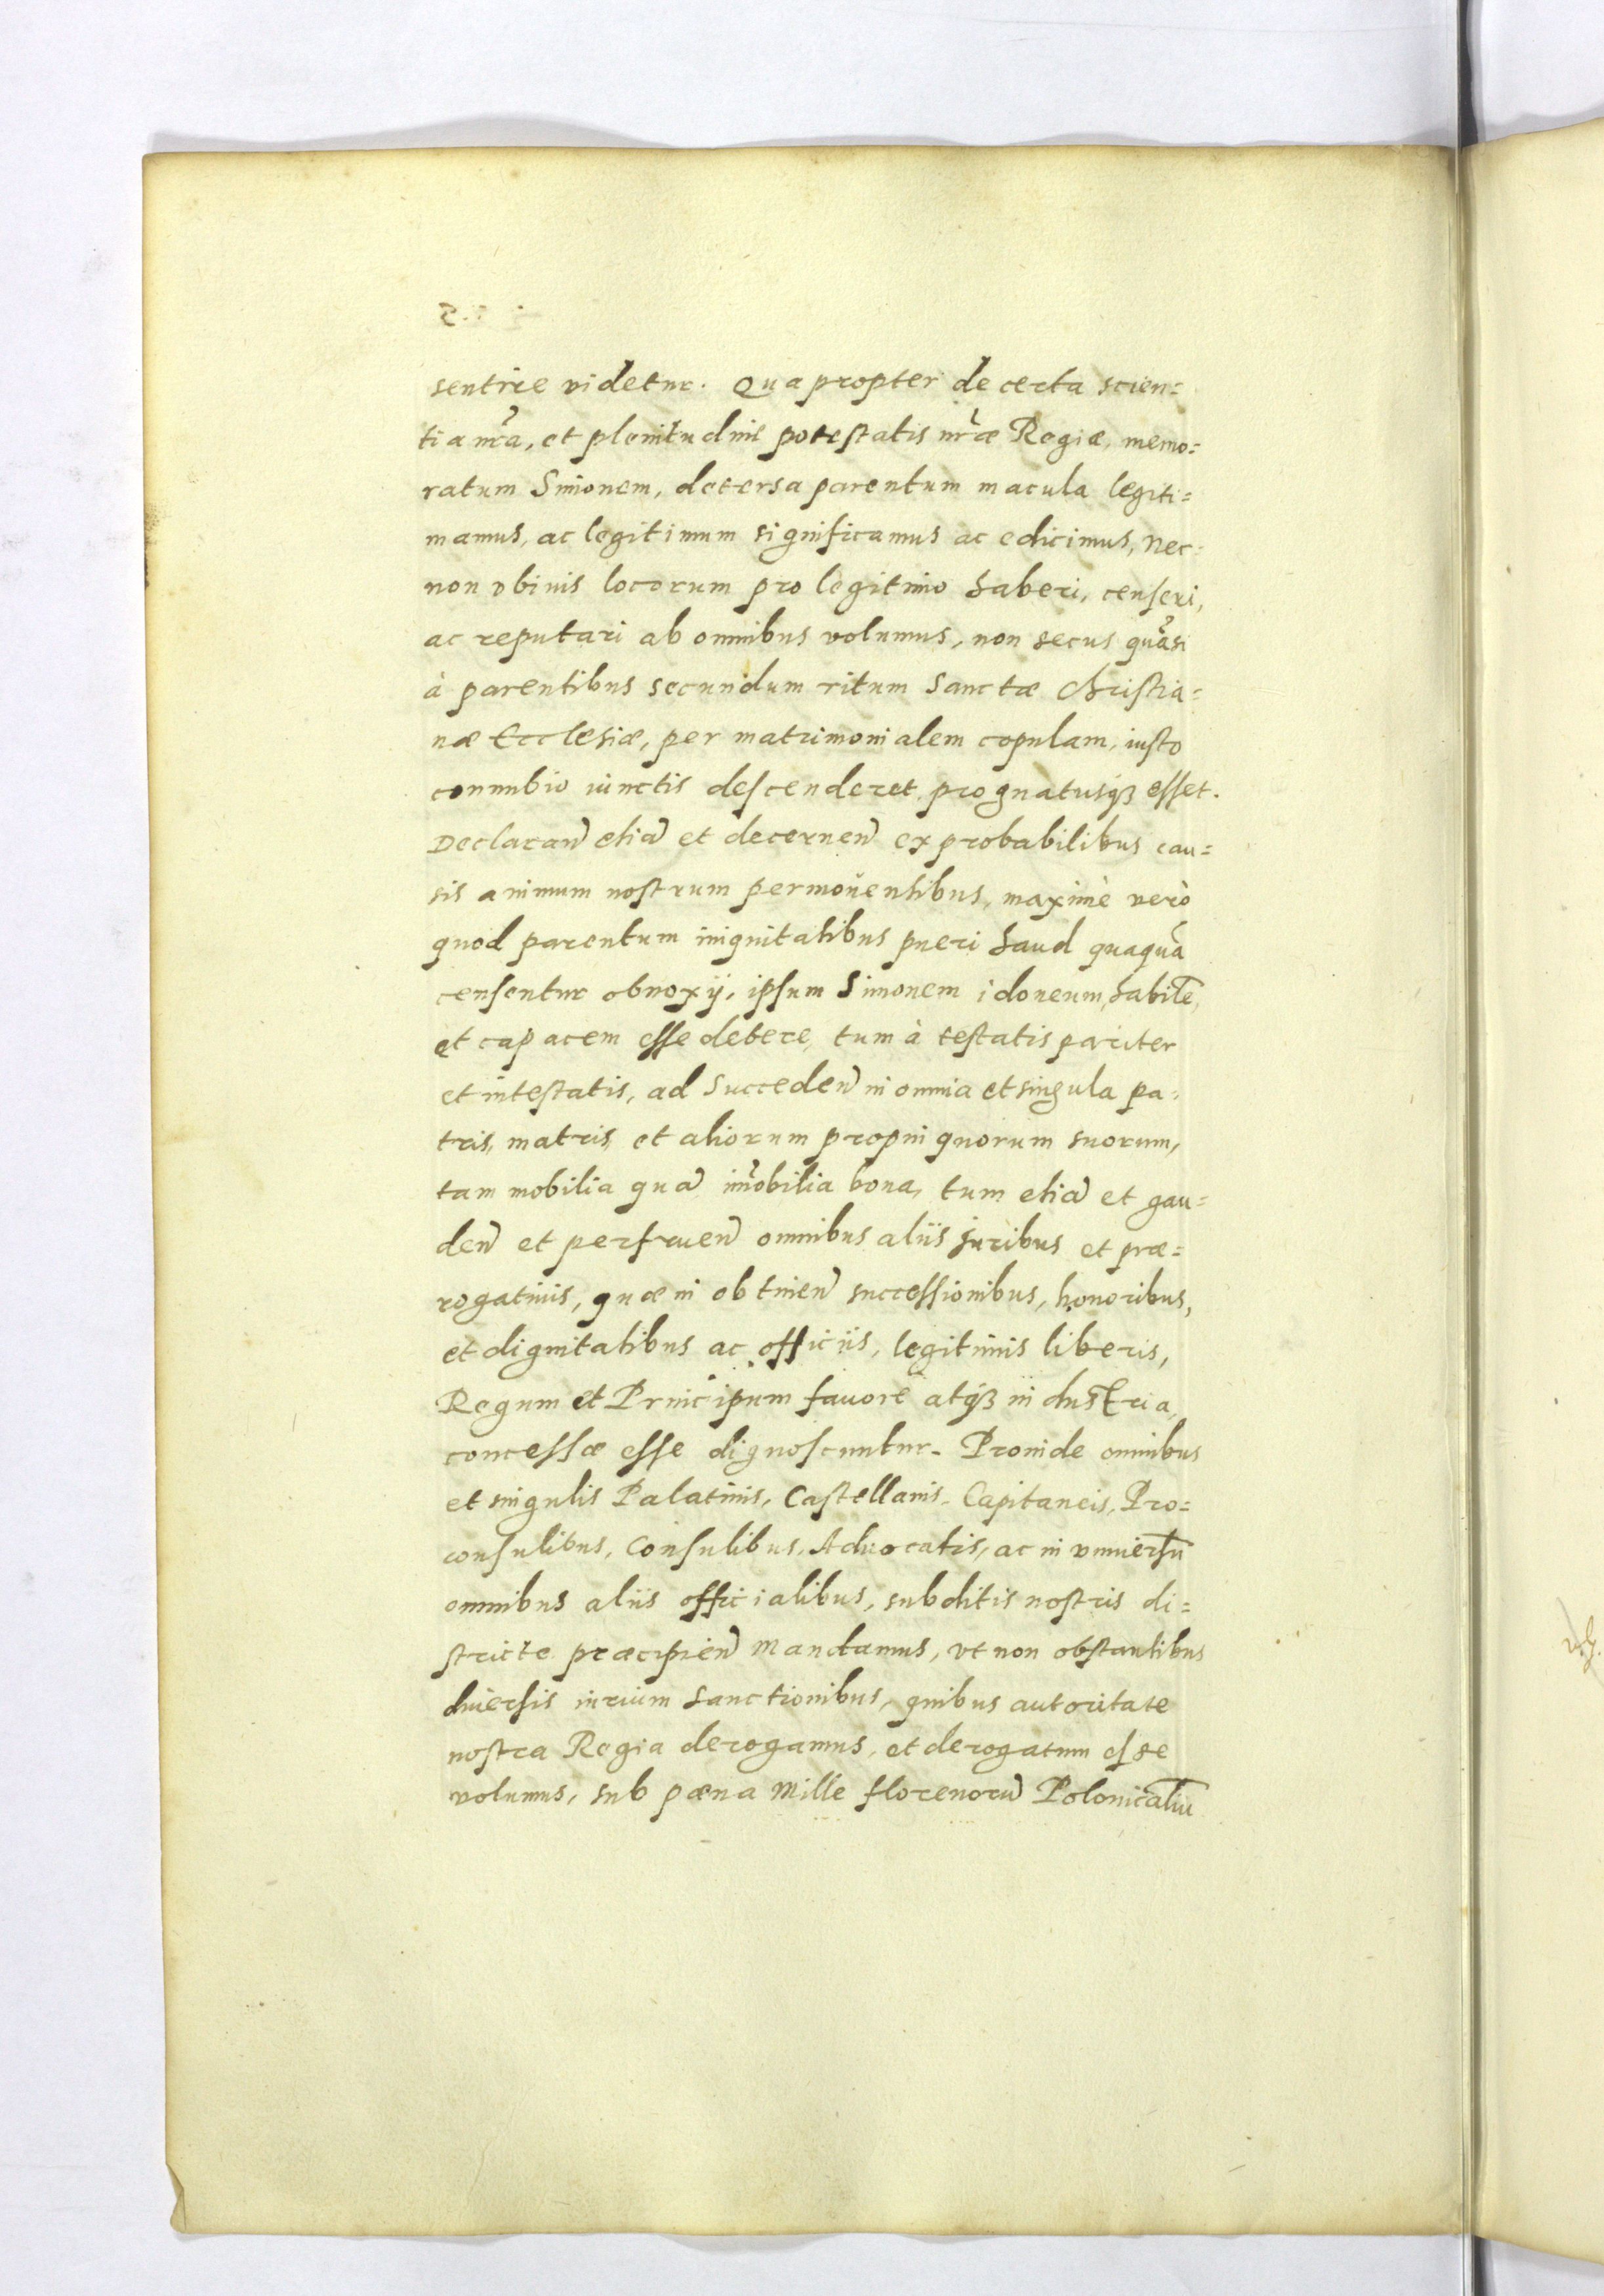 sentire videtur. Quapropter de certa scien=
tia nr̃a, et plenitudine potestatis nr̃æ Regiæ, memo=
ratum Simonem, detersa parentum macula legiti=
mamus, ac legitimum significamus ac edicimus, nec=
non vbivis locorum pro legitimo haberi, censeri,
ac reputari ab omnibus volumus, non secus quãsi
à parentibus secundum ritum Sanctæ Christia=
næ Ecclesiæ, per matrimonialem copulam, iusto
connubio iunctis descenderet prognatusqꝫ esset.
Declaran̄ etiã et decernen̄ ex probabilibus cau=
sis animum nostrum permouentibus, maximè verò
quod parentum iniquitatibus pueri haud quaquã
censentur obnoxij, ipsum Simonem idoneum, habilẽ,
et capacem esse debere, tum à testatis pariter
et intestatis, ad Succeden̄ in omnia et singula pa=
tris, matris, et aliorum propinquorum suorum,
tam mobilia quã im̃obilia bona, tum etiã et gau=
den̄ et perfruen̄ omnibus aliis juribus et præ=
rogatiuis, quæ in obtinen̄ successionibus, honoribus,
et dignitatibus ac officiis, legitimis liberis,
Regum et Principum fauore atqꝫ industria,
concessæ esse dignoscuntur. Proinde omnibus
et singulis Palatinis, Castellanis, Capitaneis, Pro=
consulibus, Consulibus, Aduocatis, ac in vniuersũ
omnibus aliis officialibus, subditis nostris di=
stricte præcipien̄ mandamus, vt non obstantibus
diuersis iurium sanctionibus, quibus autoritate
nostra Regia derogamus, et derogatum esse
volumus, sub pæna mille florenorũ Polonicaliũ